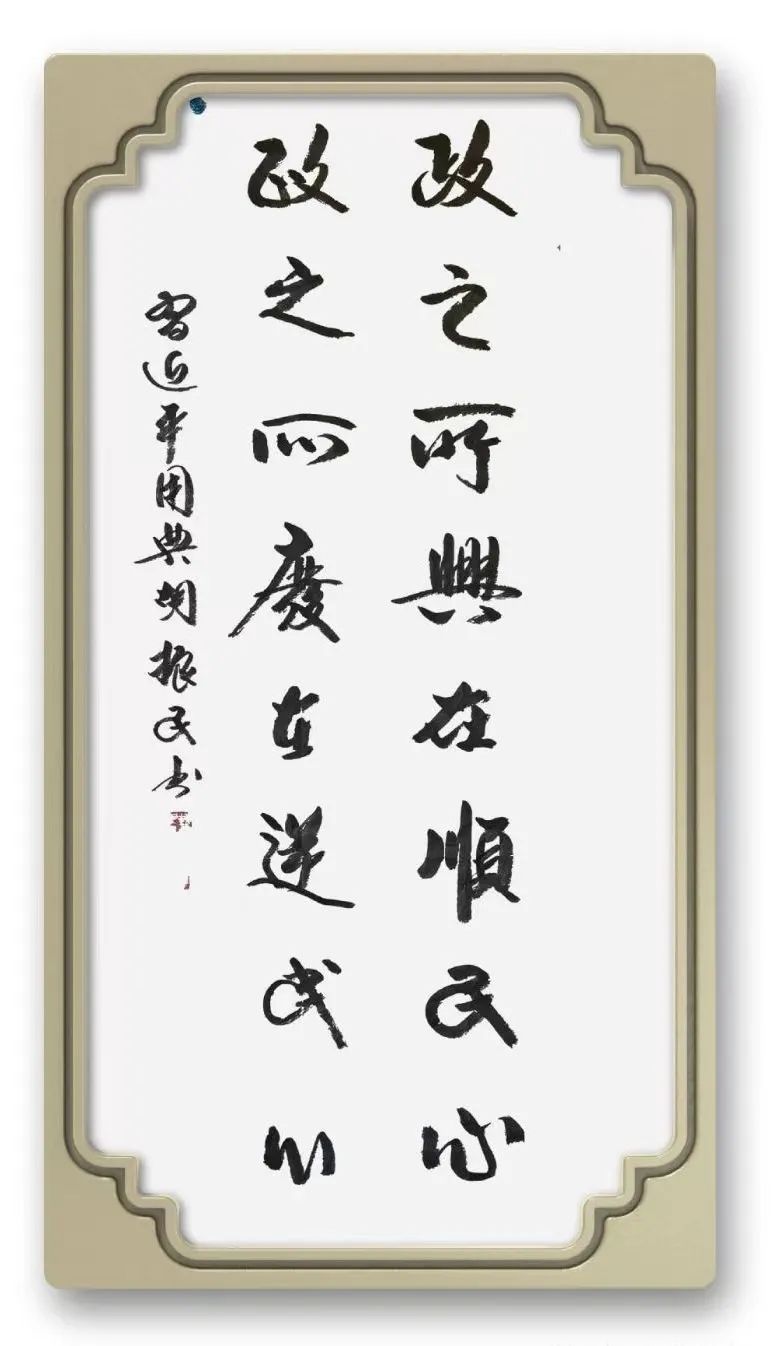 政之所興在順民心
政之所廢在逆民心
習近平用典胡振民书